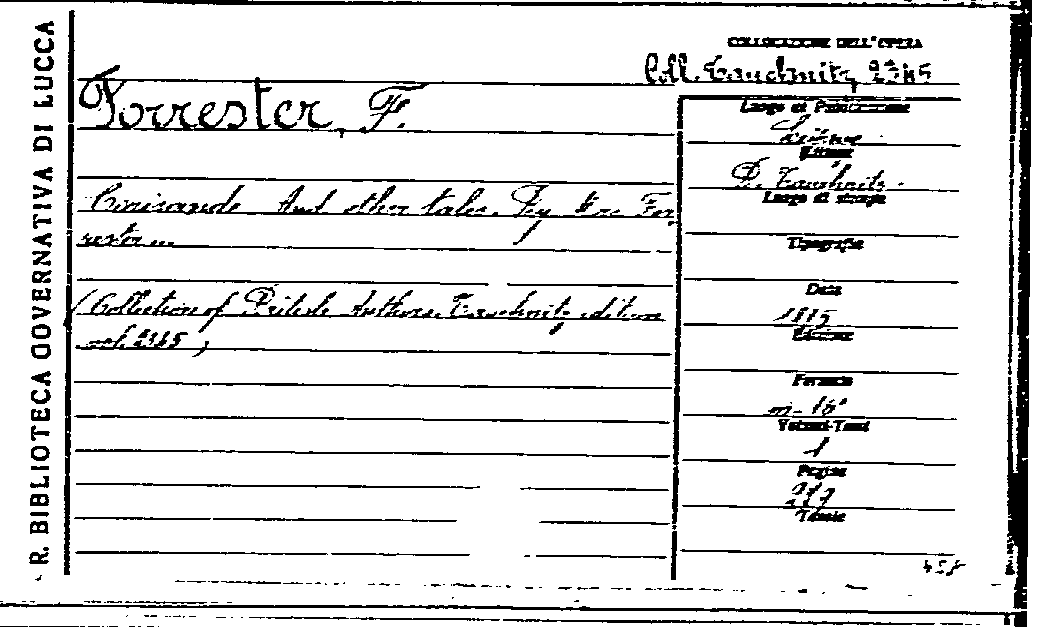 R. BIBLIOTECA GOVERNATIVA DI LUCCA
COLLOCAZIONE DELL'OPERA
Coll. Tauchnitz 2345
Forrester, F.
Luogo di Pubblicazione
Editore
B. Tauchnitz.
Luogo di stampa
And other tales. By Mrs. For
rester...
Tipografia
Data
(Collection of British Authors. Tauchnitz edition
vol. 2345)
1885
Edizione
Formato
in-16°
Volumi-Tomi
1
Pagine
Tavole